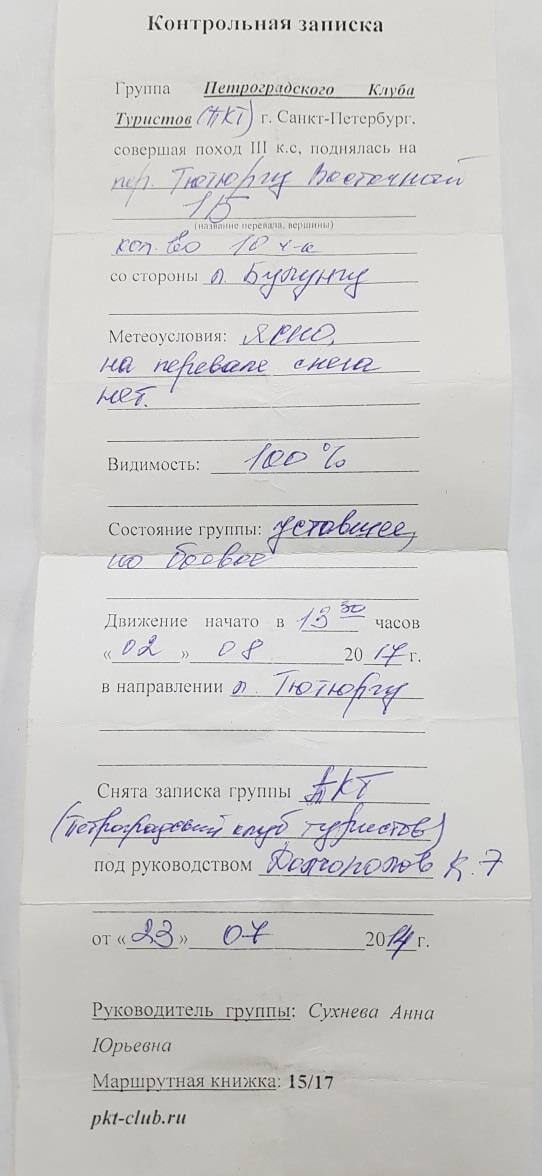 Контрольная записка
Группа Петроградского Клуба
Туристов (ПКТ) г. Санкт-Петербург,
совершая поход III к.с, поднялась на
пер. Тютюргу Восточный
1Б
(название перевала, вершины)
кол-во 10 ч-к
со стороны л. Булунгу
Метеоусловия: Ясно,
на перевале снега
нет.
Видимость: 100 %
Состояние группы: уставшее,
но боевое
Движение начато в 13 30 часов
« 02 » 08 2017 г.
в направлении л. Тютюргу
Снята записка группы ПКТ
(Петроградский клуб туристов)
под руководством К.
от « 23 » 07 2014 г.
Руководитель группы: Сухнева Анна
Юрьевна
Маршрутная книжка: 15/17
pkt-club.ru